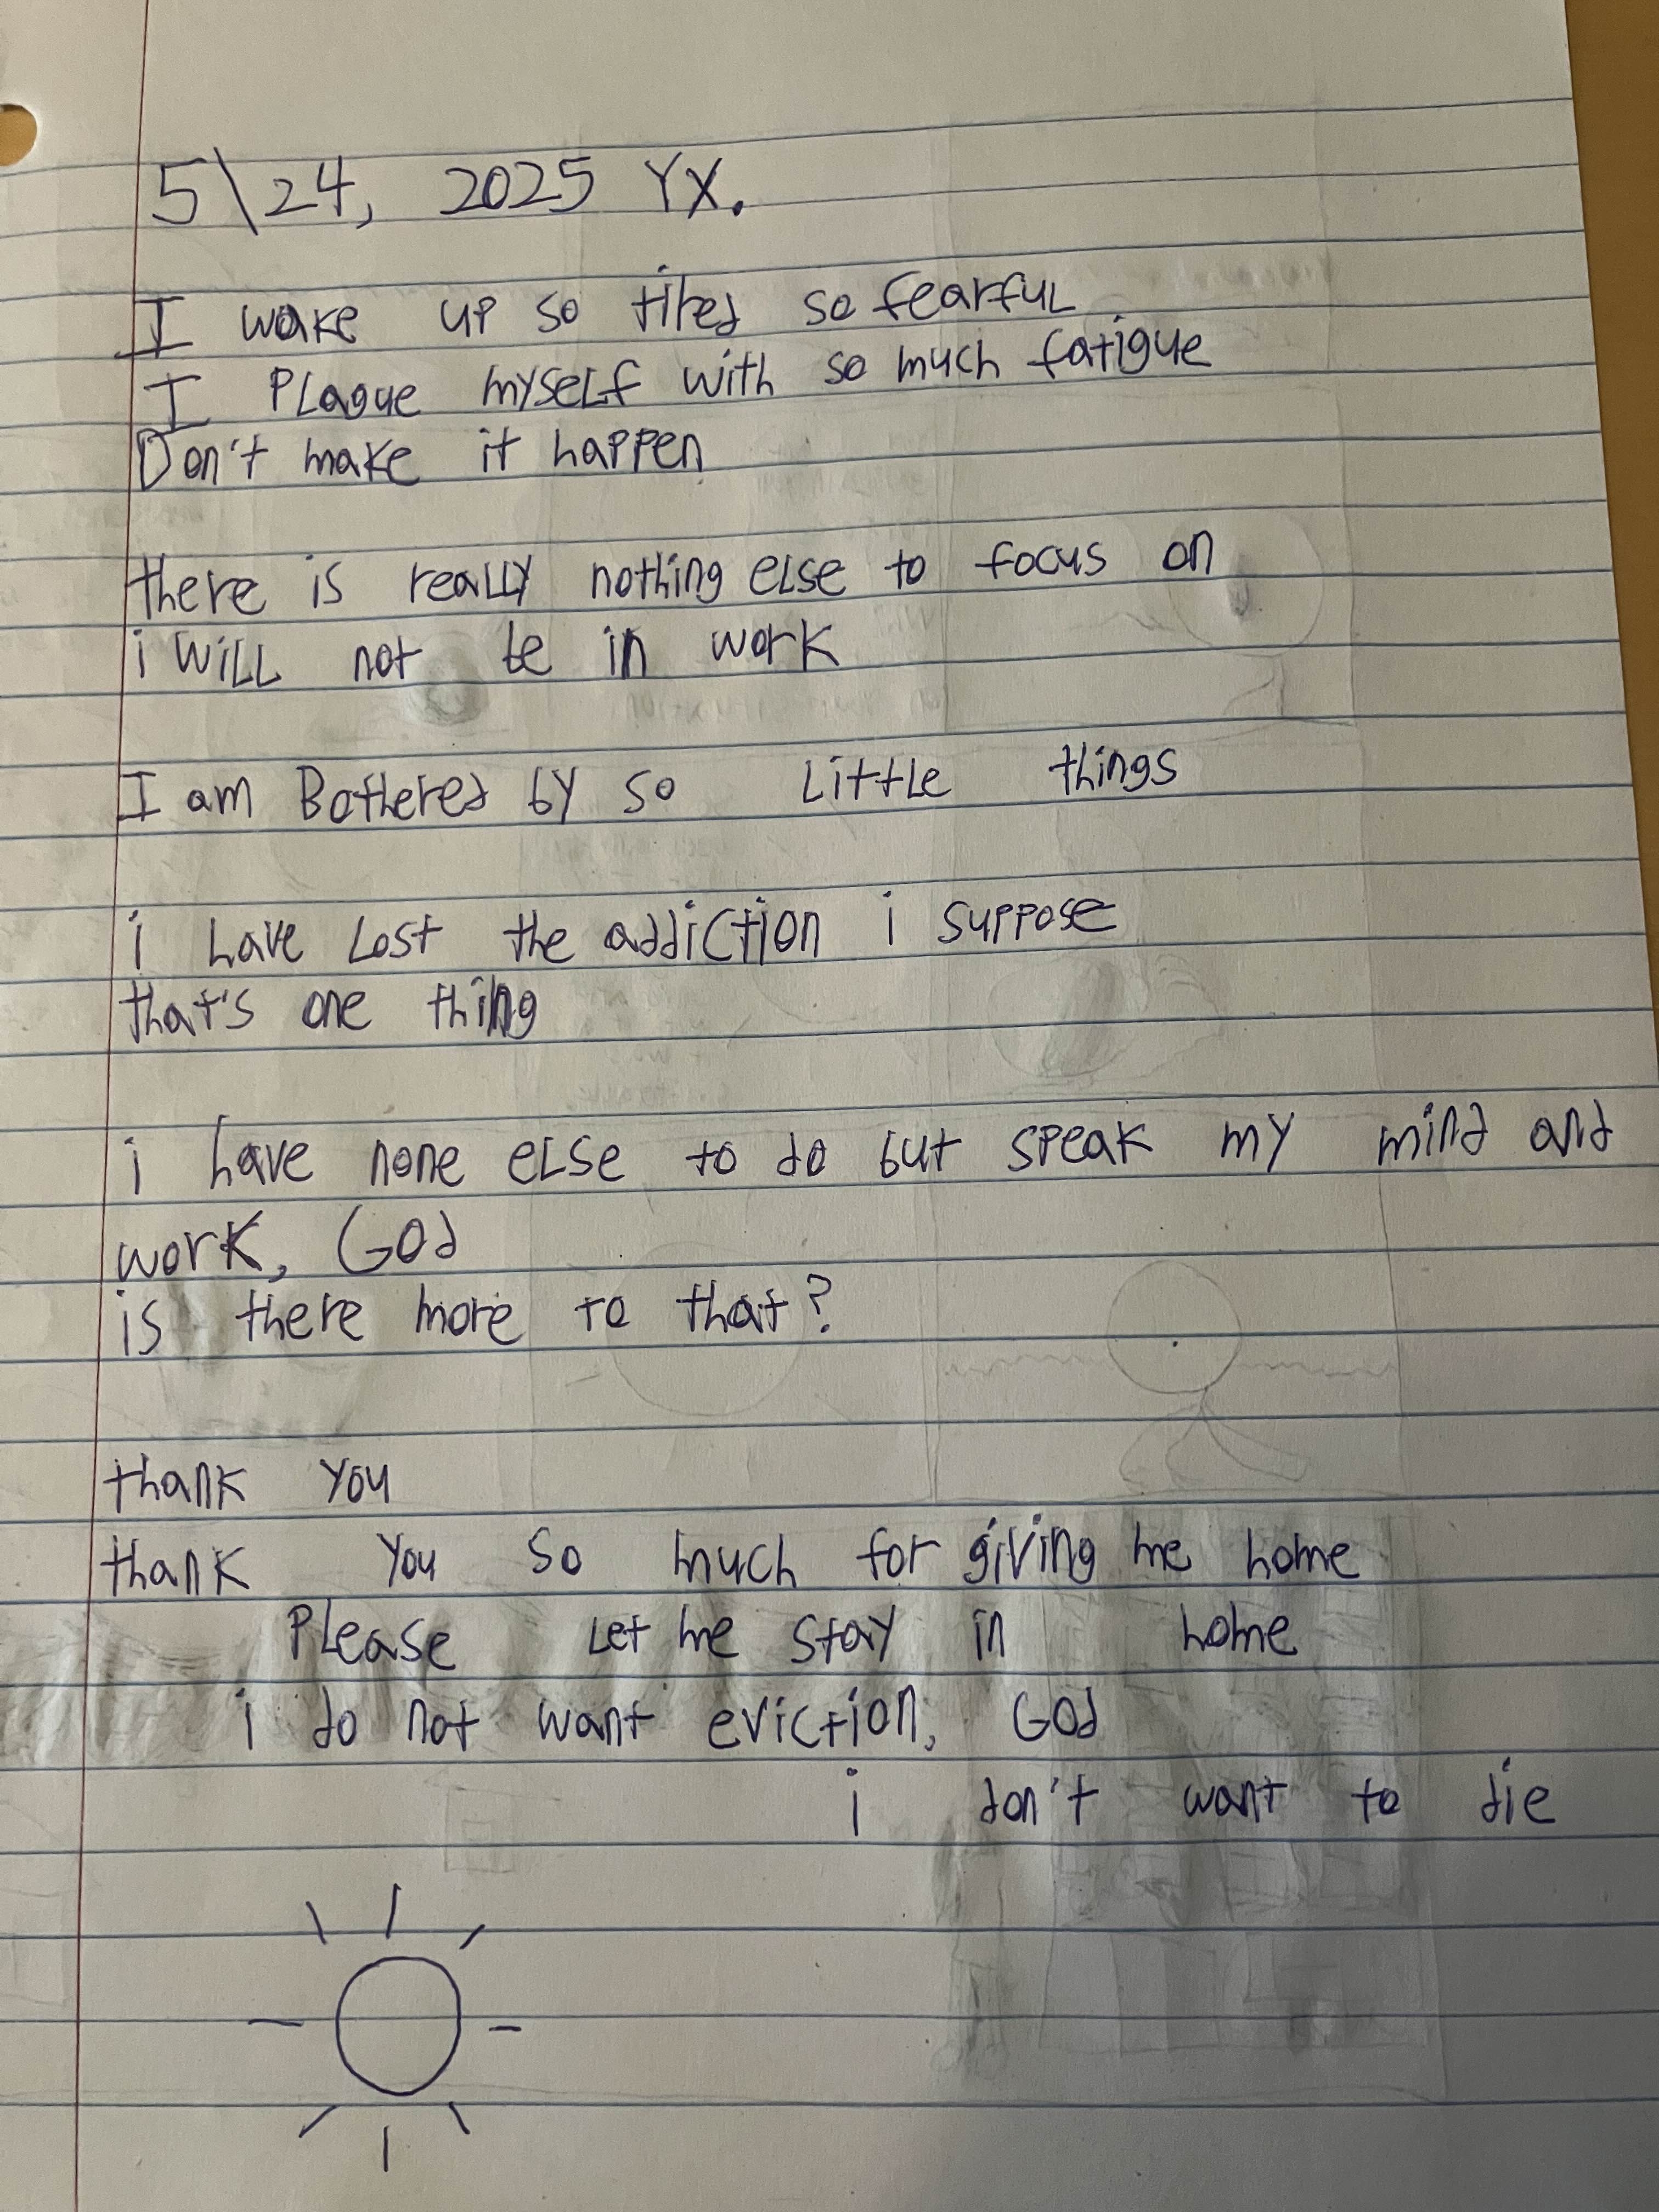 5\24, 2025 YX.
I wake up so tired so fearful
I Plague myself with so much fatigue
Don't make it happen
there is really nothing else to focus on
i will not be in work
I am Bothered by so little things
i have lost the addiction i suppose
that's one thing
i have none else to do but speak my mind and
work, God
is there more to that?
thank you
thank you so much for giving me home
Please let me stay in home
i do not want eviction, God
i don't want to die